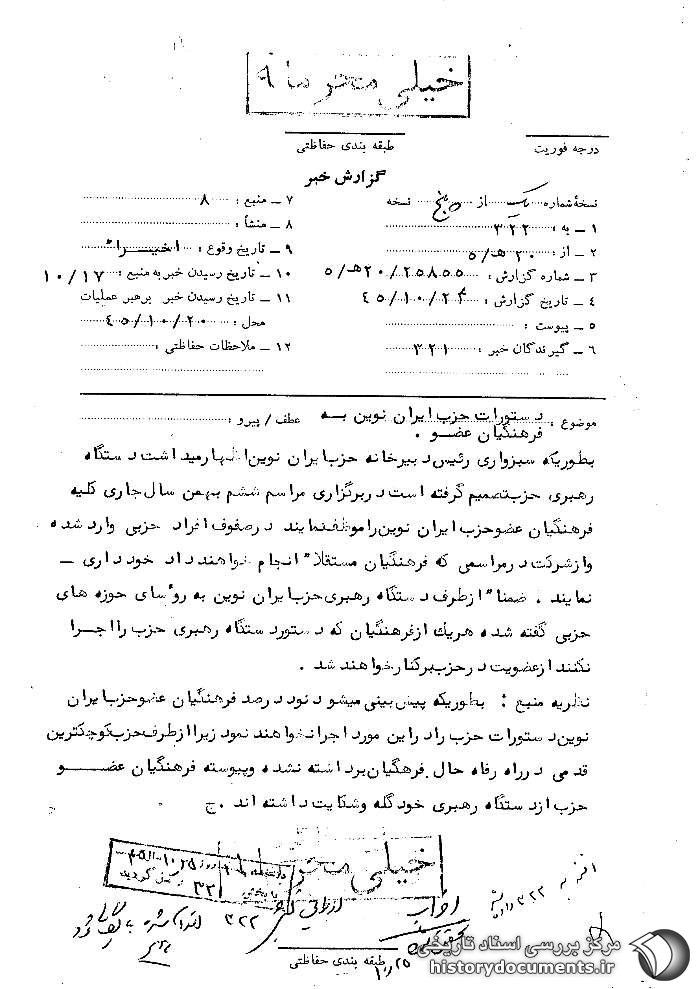 خیلی محرمانه
درجه فوریت
طبقه بندی حفاظتی
گزارش خبر
نسخهٔ شماره یک از پنج نسخه
۱ ـ به : ۳۲۲
۲ ـ از : ۲۰ هـ/۵
۳ ـ شماره گزارش : ۲۵۸۵۵/۲۰هـ/۵
۴ ـ تاریخ گزارش : ۴۵/۱۰/۲۴
۵ ـ پیوست :
۶ ـ گیرندگان خبر : ۳۲۱
۷ ـ منبع : ۸
۸ ـ منشأ :
۹ ـ تاریخ وقوع : اخیراً
۱۰ ـ تاریخ رسیدن خبر به منبع : ۱۰/۱۷
۱۱ ـ تاریخ رسیدن خبر برهبر عملیات
محل : ۴۵/۱۰/۲۰
۱۲ ـ ملاحظات حفاظتی :
موضوع : دستورات حزب ایران نوین به
فرهنگیان عضو .
عطف / پیرو :
بطوریکه سبزواری رئیس دبیرخانه حزب ایران نوین اظهار میداشت دستگاه
رهبری حزب تصمیم گرفته است در برگزاری مراسم ششم بهمن سال جاری کلیه
فرهنگیان عضو حزب ایران نوین را موظف نمایند در صفوف افراد حزبی وارد شده
و از شرکت در مراسمی که فرهنگیان مستقلاً انجام خواهند داد خود داری ـ
نمایند . ضمناً از طرف دستگاه رهبری حزب ایران نوین به رؤسای حوزه های
حزبی گفته شده هریک از فرهنگیان که دستور دستگاه رهبری حزب را اجرا
نکنند از عضویت در حزب برکنار خواهند شد .
نظریه منبع : بطوریکه پیش بینی میشود نود درصد فرهنگیان عضو حزب ایران
نوین دستورات حزب را در این مورد اجرا نخواهند نمود زیرا از طرف حزب کوچکترین
قدمی در راه رفاه حال فرهگیان برداشته نشده و پیوسته فرهنگیان عضو
حزب از دستگاه رهبری خود گله و شکایت داشته اند . ج
خیلی محر
۳۲۲
طبقه بندی حفاظتی
۱۰/۲۵
مرکز بررسی اسناد تاریخی
historydocuments.ir